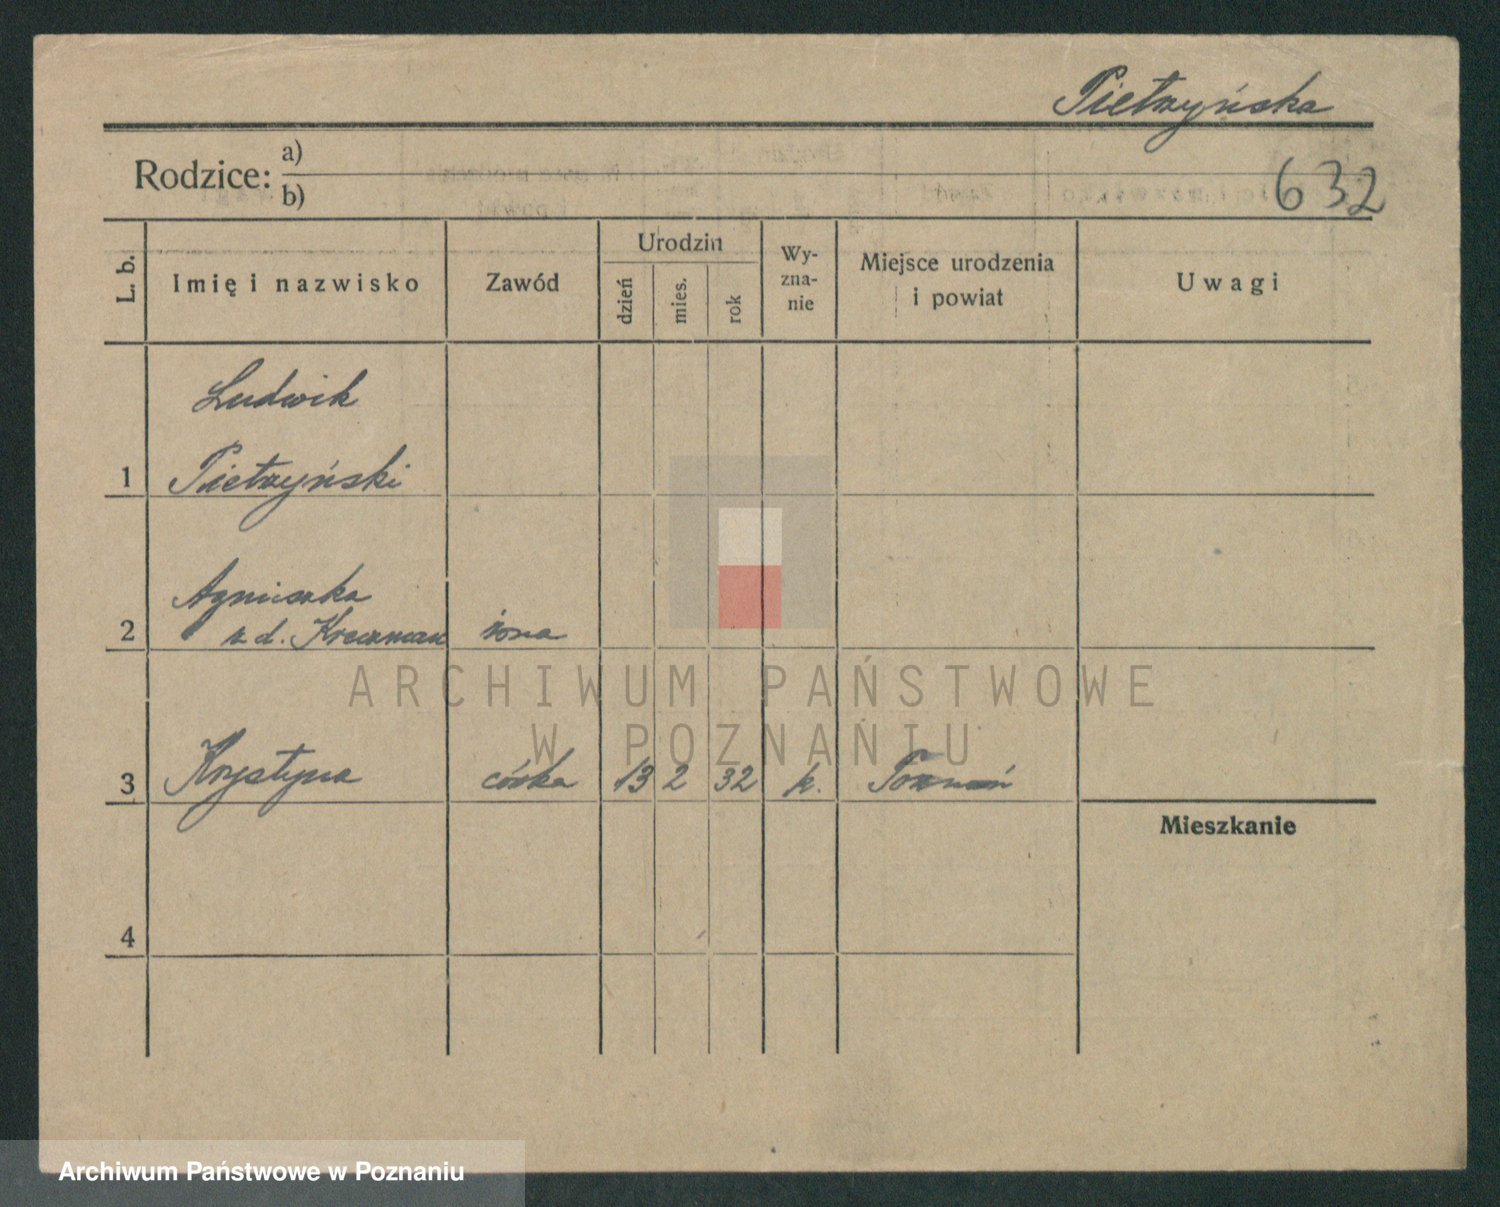 Pietrzyńska
Rodzice: a)
b)
632
L. b.
Imię i nazwisko
Zawód
Urodzin
dzień
mies.
rok
Wy-
zna-
nie
Miejsce urodzenia
i powiat
Uwagi
Ludwik
1 Pietrzyński
Agnieszka
2 z d. Kreczman żona
3 Krystyna córka 13 2 32 k. Poznań
Mieszkanie
4
ARCHIWUM PAŃSTWOWE
W POZNANIU
Archiwum Państwowe w Poznaniu